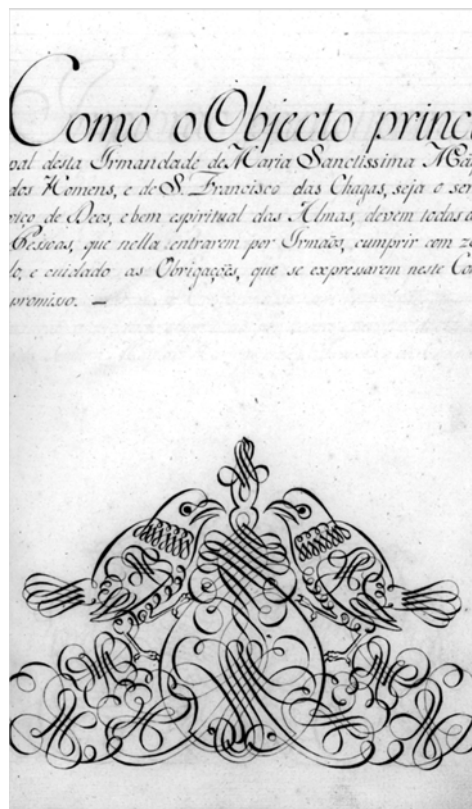 Como o Objecto princi
pal desta Irmandade de Maria Sanctissima Mãi
dos Homens, e de S. Francisco das Chagas, seja o ser
viço de Deos, e bem espiritual das Almas, devem todas a
Pessoas, que nella entrarem por Irmãos, cumprir com ze
lo, e cuidado as Obrigações, que se expressarem neste Co
promisso. —